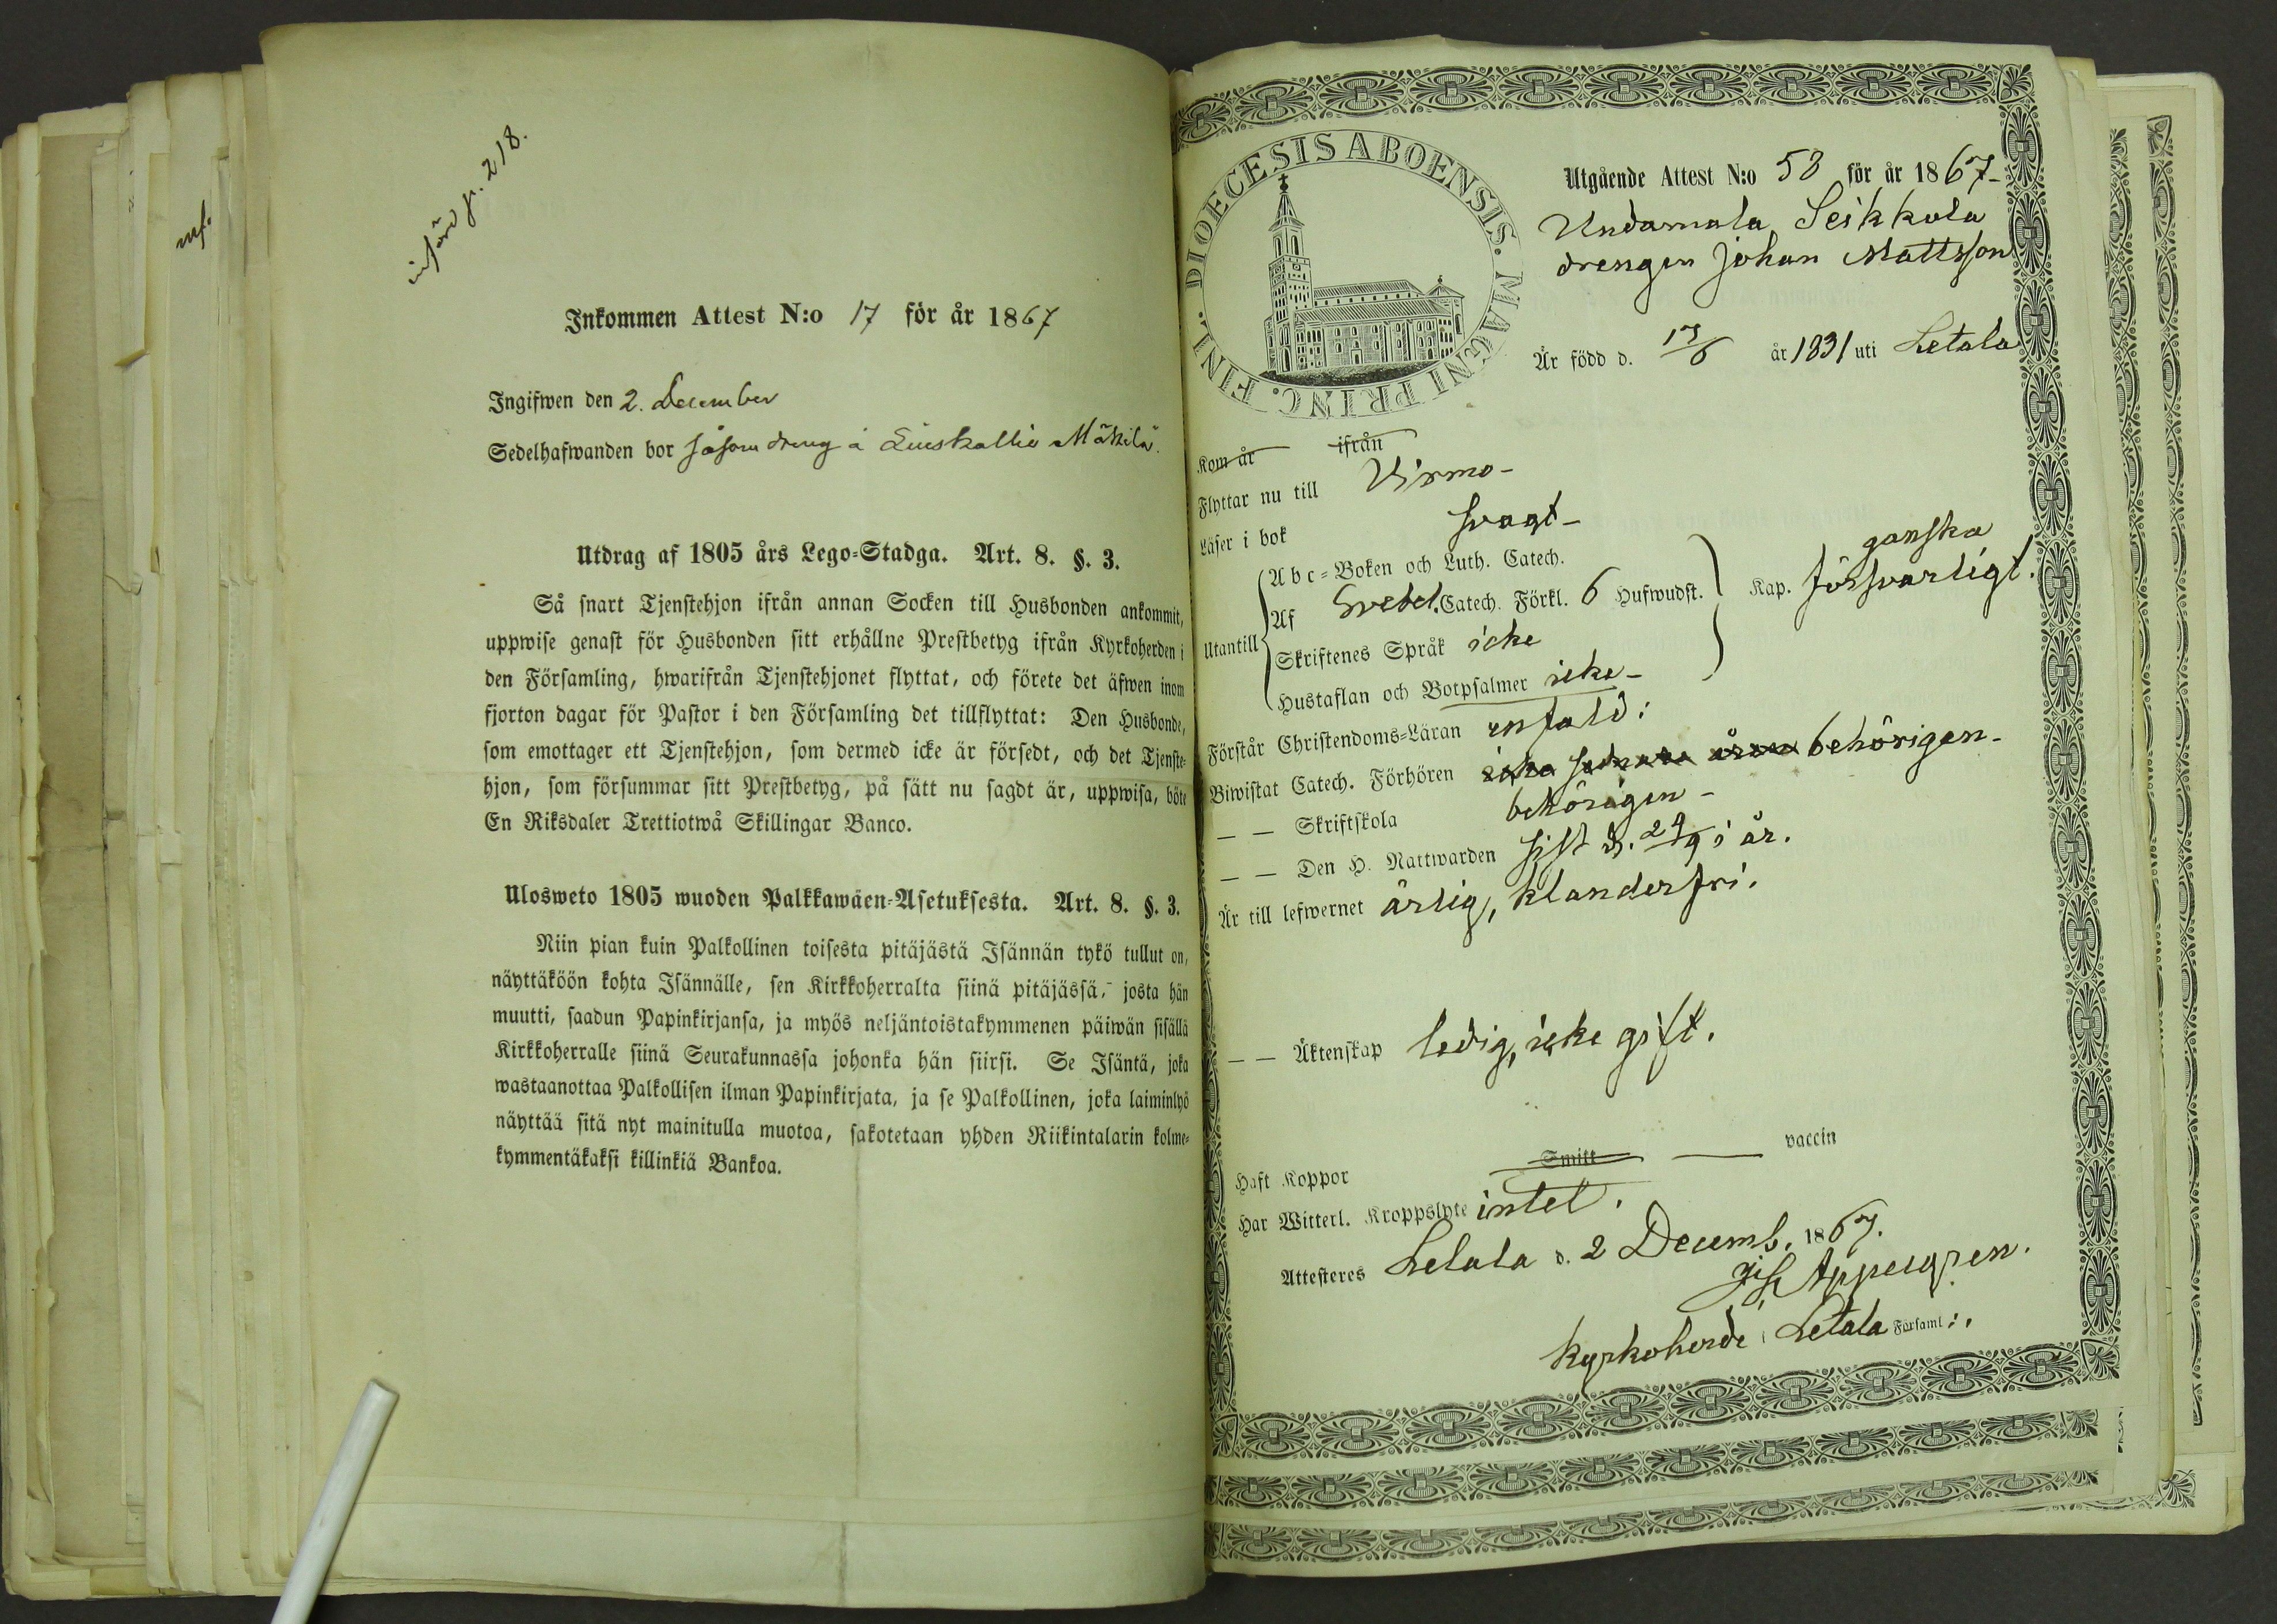 inf.
införd p. 218.
Inkommen Attest N:o 17 för år 1867
Ingifwen den 2. December
Sedelhafwanden bor såsom dreng å Liuskallio Mäkilä.
Utdrag af 1805 års Lego-Stadga. Art. 8. §. 3.
Så snart Tjenstehjon ifrån annan Socken till Husbonden ankommit,
uppwise genast för Husbonden sitt erhållne Prestbetyg ifrån Kyrkoherden i
den Församling, hwarifrån Tjenstehjonet flyttat, och förete det äfwen inom
fjorton dagar för Pastor i den Församling det tillflyttat: Den Husbonde,
som emottager ett Tjenstehjon, som dermed icke är försedt, och det Tjenste-
hjon, som försummar sitt Prestbetyg, på sätt nu sagdt är, uppwisa, böte
En Riksdaler Trettiotwå Skillingar Banco.
Ulosweto 1805 wuoden Palkkawäen-Asetuksesta. Art. 8. §. 3.
Niin pian kuin Palkollinen toisesta pitäjästä Isännän tykö tullut on,
näyttäköön kohta Isännälle, sen Kirkkoherralta siinä pitäjässä, josta hän
muutti, saadun Papinkirjansa, ja myös neljäntoistakymmenen päiwän sisällä
Kirkkoherralle siinä Seurakunnassa johonka hän siirsi. Se Isäntä, joka
wastaanottaa Palkollisen ilman Papinkirjata, ja se Palkollinen, joka laiminlyö
näyttää sitä nyt mainitulla muotoa, sakotetaan yhden Riikintalarin kolme-
kymmentäkaksi killinkiä Bankoa.
DIOECESIS ABOENSIS. MAGNI PRINC. FINL.
Utgående Attest N:o 53 för år 1867-
Undamala Seikkola
drengen Johan Mattsson
Är född d. 17/6 år 1831 uti Letala
Kom år ifrån
Flyttar nu till Virmo-
Läser i bok svagt-
Utantill
Abc-Boken och Luth. Catech.
Af Svebel. Catech. Förkl. 6 Hufwudst.
Skriftenes Språk icke
Hustaflan och Botpsalmer icke-
Kap. ganska
försvarligt.
Förstår Christendoms-Läran enfald:
Biwistat Catech. Förhören icke sednare åren behörigen-
— — Skriftskola behörigen-
— — Den H. Nattwarden sist d. 29/9 i år.
Är till lefwernet ärlig, klanderfri.
— — Äktenskap ledig, icke gift.
Haft Koppor Smitt — vaccin
Har Witterl. Kroppslyte intet.
Attesteres Letala d. 2 Decemb. 1867.
Appelgren.
Kyrkoherde i Letala Församl:.